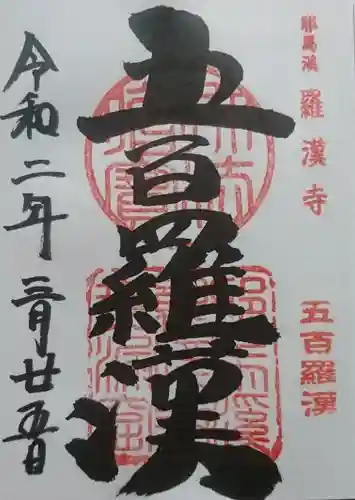 耶馬渓
羅漢寺
五百羅漢
五百羅漢
令和二年三月廿五日